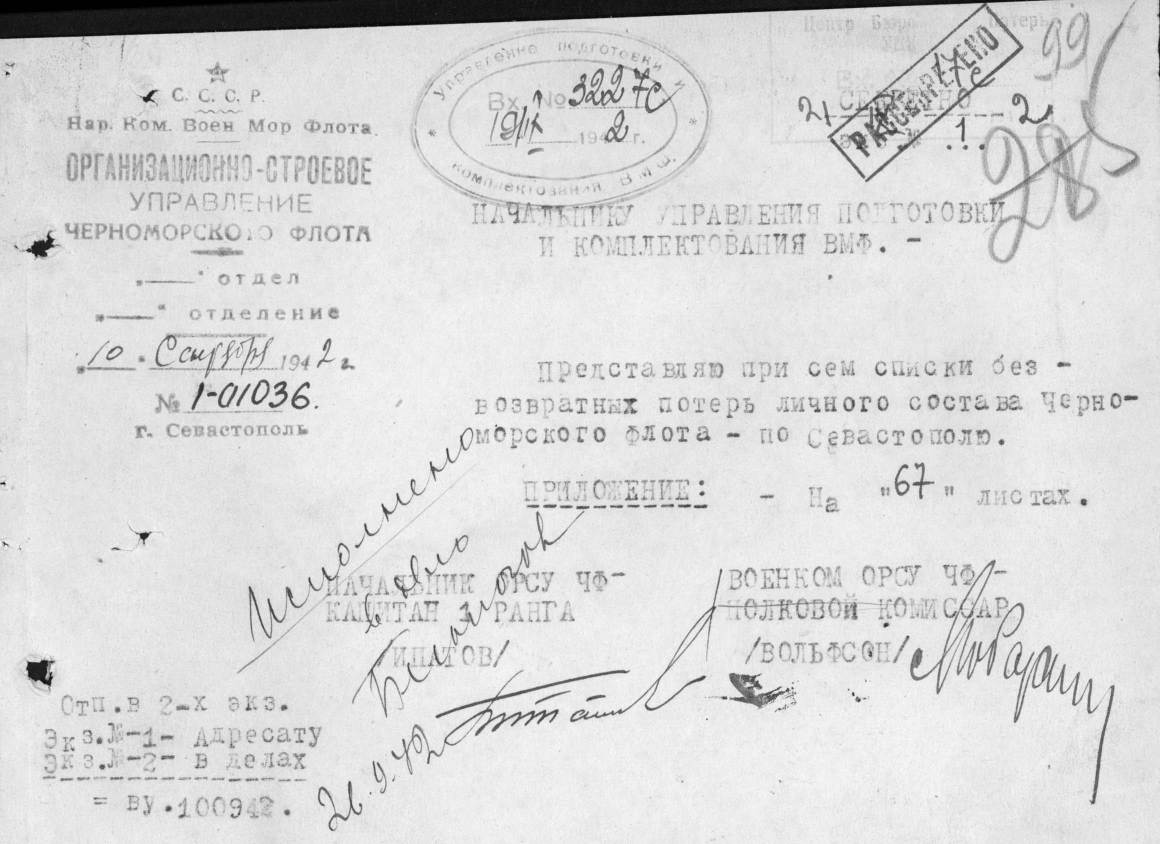 С. С. С. Р.
Нар. Ком. Воен Мор Флота.
ОРГАНИЗАЦИОННО-СТРОЕВОЕ
УПРАВЛЕНИЕ
ЧЕРНОМОРСКОГО ФЛОТА
„——" отдел
„——" отделение
„10" Сентября 1942 г.
№ 1-01036.
г. Севастополь
Управление подготовки и
комплектования В М Ф.
Вх. № 3227с
194 2 г.
Центр Бюро Потерь
РАССЕКРЕЧЕНО
СЕКРЕТНО
Экз. № 1.
99
285
НАЧАЛЬНИКУ УПРАВЛЕНИЯ ПОДГОТОВКИ
И КОМПЛЕКТОВАНИЯ ВМФ. -
Представляю при сем списки без -
возвратных потерь личного состава Черно-
морского флота - по Севастополю.
ПРИЛОЖЕНИЕ: - На "67" листах.
НАЧАЛЬНИК ОРСУ ЧФ-
КАПИТАН 3 РАНГА
/ИПАТОВ/
ВОЕНКОМ ОРСУ ЧФ -
ПОЛКОВОЙ КОМИССАР
/ВОЛЬФСОН/
Исполнено
в дело
26.9.42
Отп.в 2-х экз.
Экз.№-1- Адресату
Экз.№-2- в делах
= ву.100942.